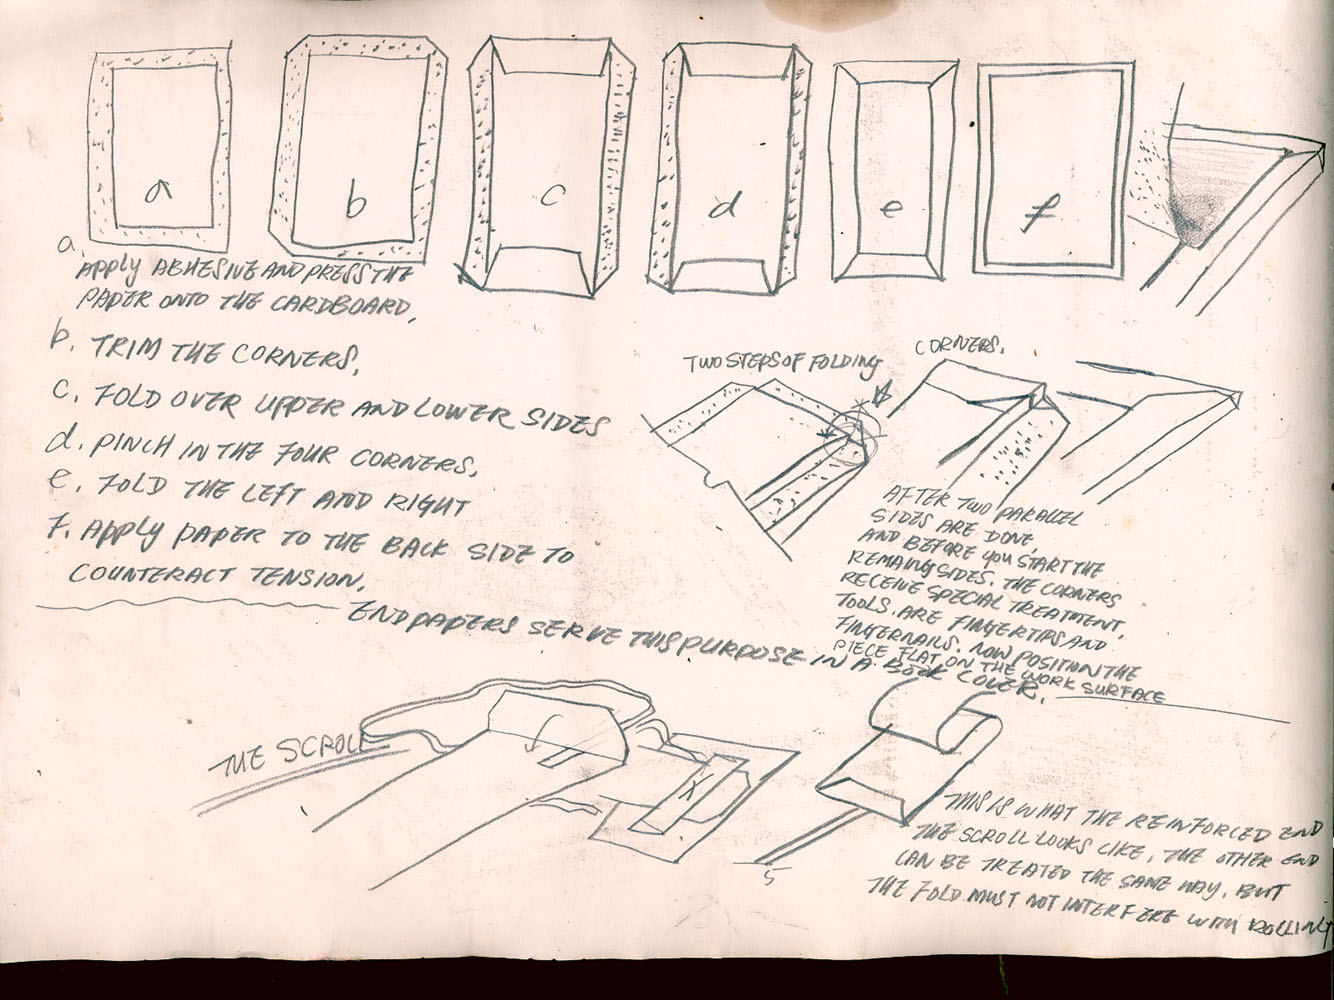 a
b
c
d
e
f
a.
APPLY ADHESIVE AND PRESS THE
PAPER ONTO THE CARDBOARD,
b. TRIM THE CORNERS,
c. FOLD OVER UPPER AND LOWER SIDES
d. PINCH IN THE FOUR CORNERS,
e. FOLD THE LEFT AND RIGHT
f. APPLY PAPER TO THE BACK SIDE TO
COUNTERACT TENSION,
ENDPAPERS SERVE THIS PURPOSE IN A BOOK COVER,
TWO STEPS OF FOLDING
CORNERS,
AFTER TWO PARALLEL
SIDES ARE DONE
AND BEFORE YOU START THE
REMAING SIDES, THE CORNERS
RECEIVE SPECIAL TREATMENT,
TOOLS ARE FINGERTIPS AND
FINGERNAILS. NOW POSITION THE
PIECE FLAT ON THE WORK SURFACE
THE SCROLL
X
5
THIS IS WHAT THE REINFORCED END
THE SCROLL LOOKS LIKE, THE OTHER END
CAN BE TREATED THE SAME WAY, BUT
THE FOLD MUST NOT INTERFERE WITH ROLLING